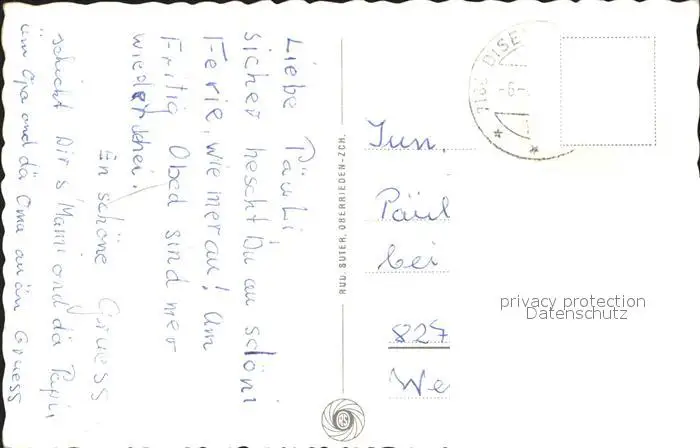 Liebe Päuli,
sicher hescht Du au schöni
Ferie, wie mer au! Am
Fritig Obed sind mer
wieder hei!
En schöne Gruess
schickt Dir s'Mami ond dä Papi,
äm Opa ond dä Oma au än Gruess
RUD. SUTER, OBERRIEDEN-ZCH.
7182 DISE
-6.-
Jun.
Päul
bei
827
We
privacy protection
Datenschutz